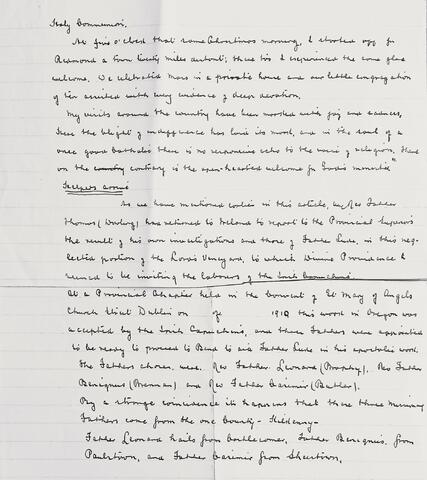 Holy Communion.
At five o'clock that same Christmas morning, I started off for
Redmond a town twenty miles distant; there too I experienced the same glad
welcome. We celebrated Mass in a private house and our little congregation
of ten assisted with every evidence of deep devotion.
My visits around the country have been marked with joy and sadness,
Here the blight of indifference has laid its mark, and in the soul of a
once good Catholic there is no responsive echo to the voice of religion. Here
on the country contrary is the open-hearted welcome for God's minister"
Helpers arrive
As we have mentioned earlier in this article, Rev Father
Thomas (Dowling) has returned to Ireland to report to the Provincial Superiors
the result of his own investigations and those of Father Luke, in this neg-
lected portion of the Lord's Vineyard, to which Divine Providence
seemed to be inviting the labours of the Irish Capuchins.
At a Provincial Chapter held in the Convent of St Mary of Angels
Church Street Dublin on of 1910 this work in Oregon was
accepted by the Irish Capuchins, and three Fathers were appointed
to be ready to proceed to Bend to aid Father Luke in his apostolic work.
The Fathers chosen were. Rev Father Leonard (Brophy), Rev Father
Benignus (Brennan) and Rev Father Casimir (Butler).
By a strange coincidence it happens that these three Missionary
Fathers come from the one County - Kilkenny -
Father Leonard hails from Castlecomer, Father Benignus, from
Paulstown, and Father Casimir from